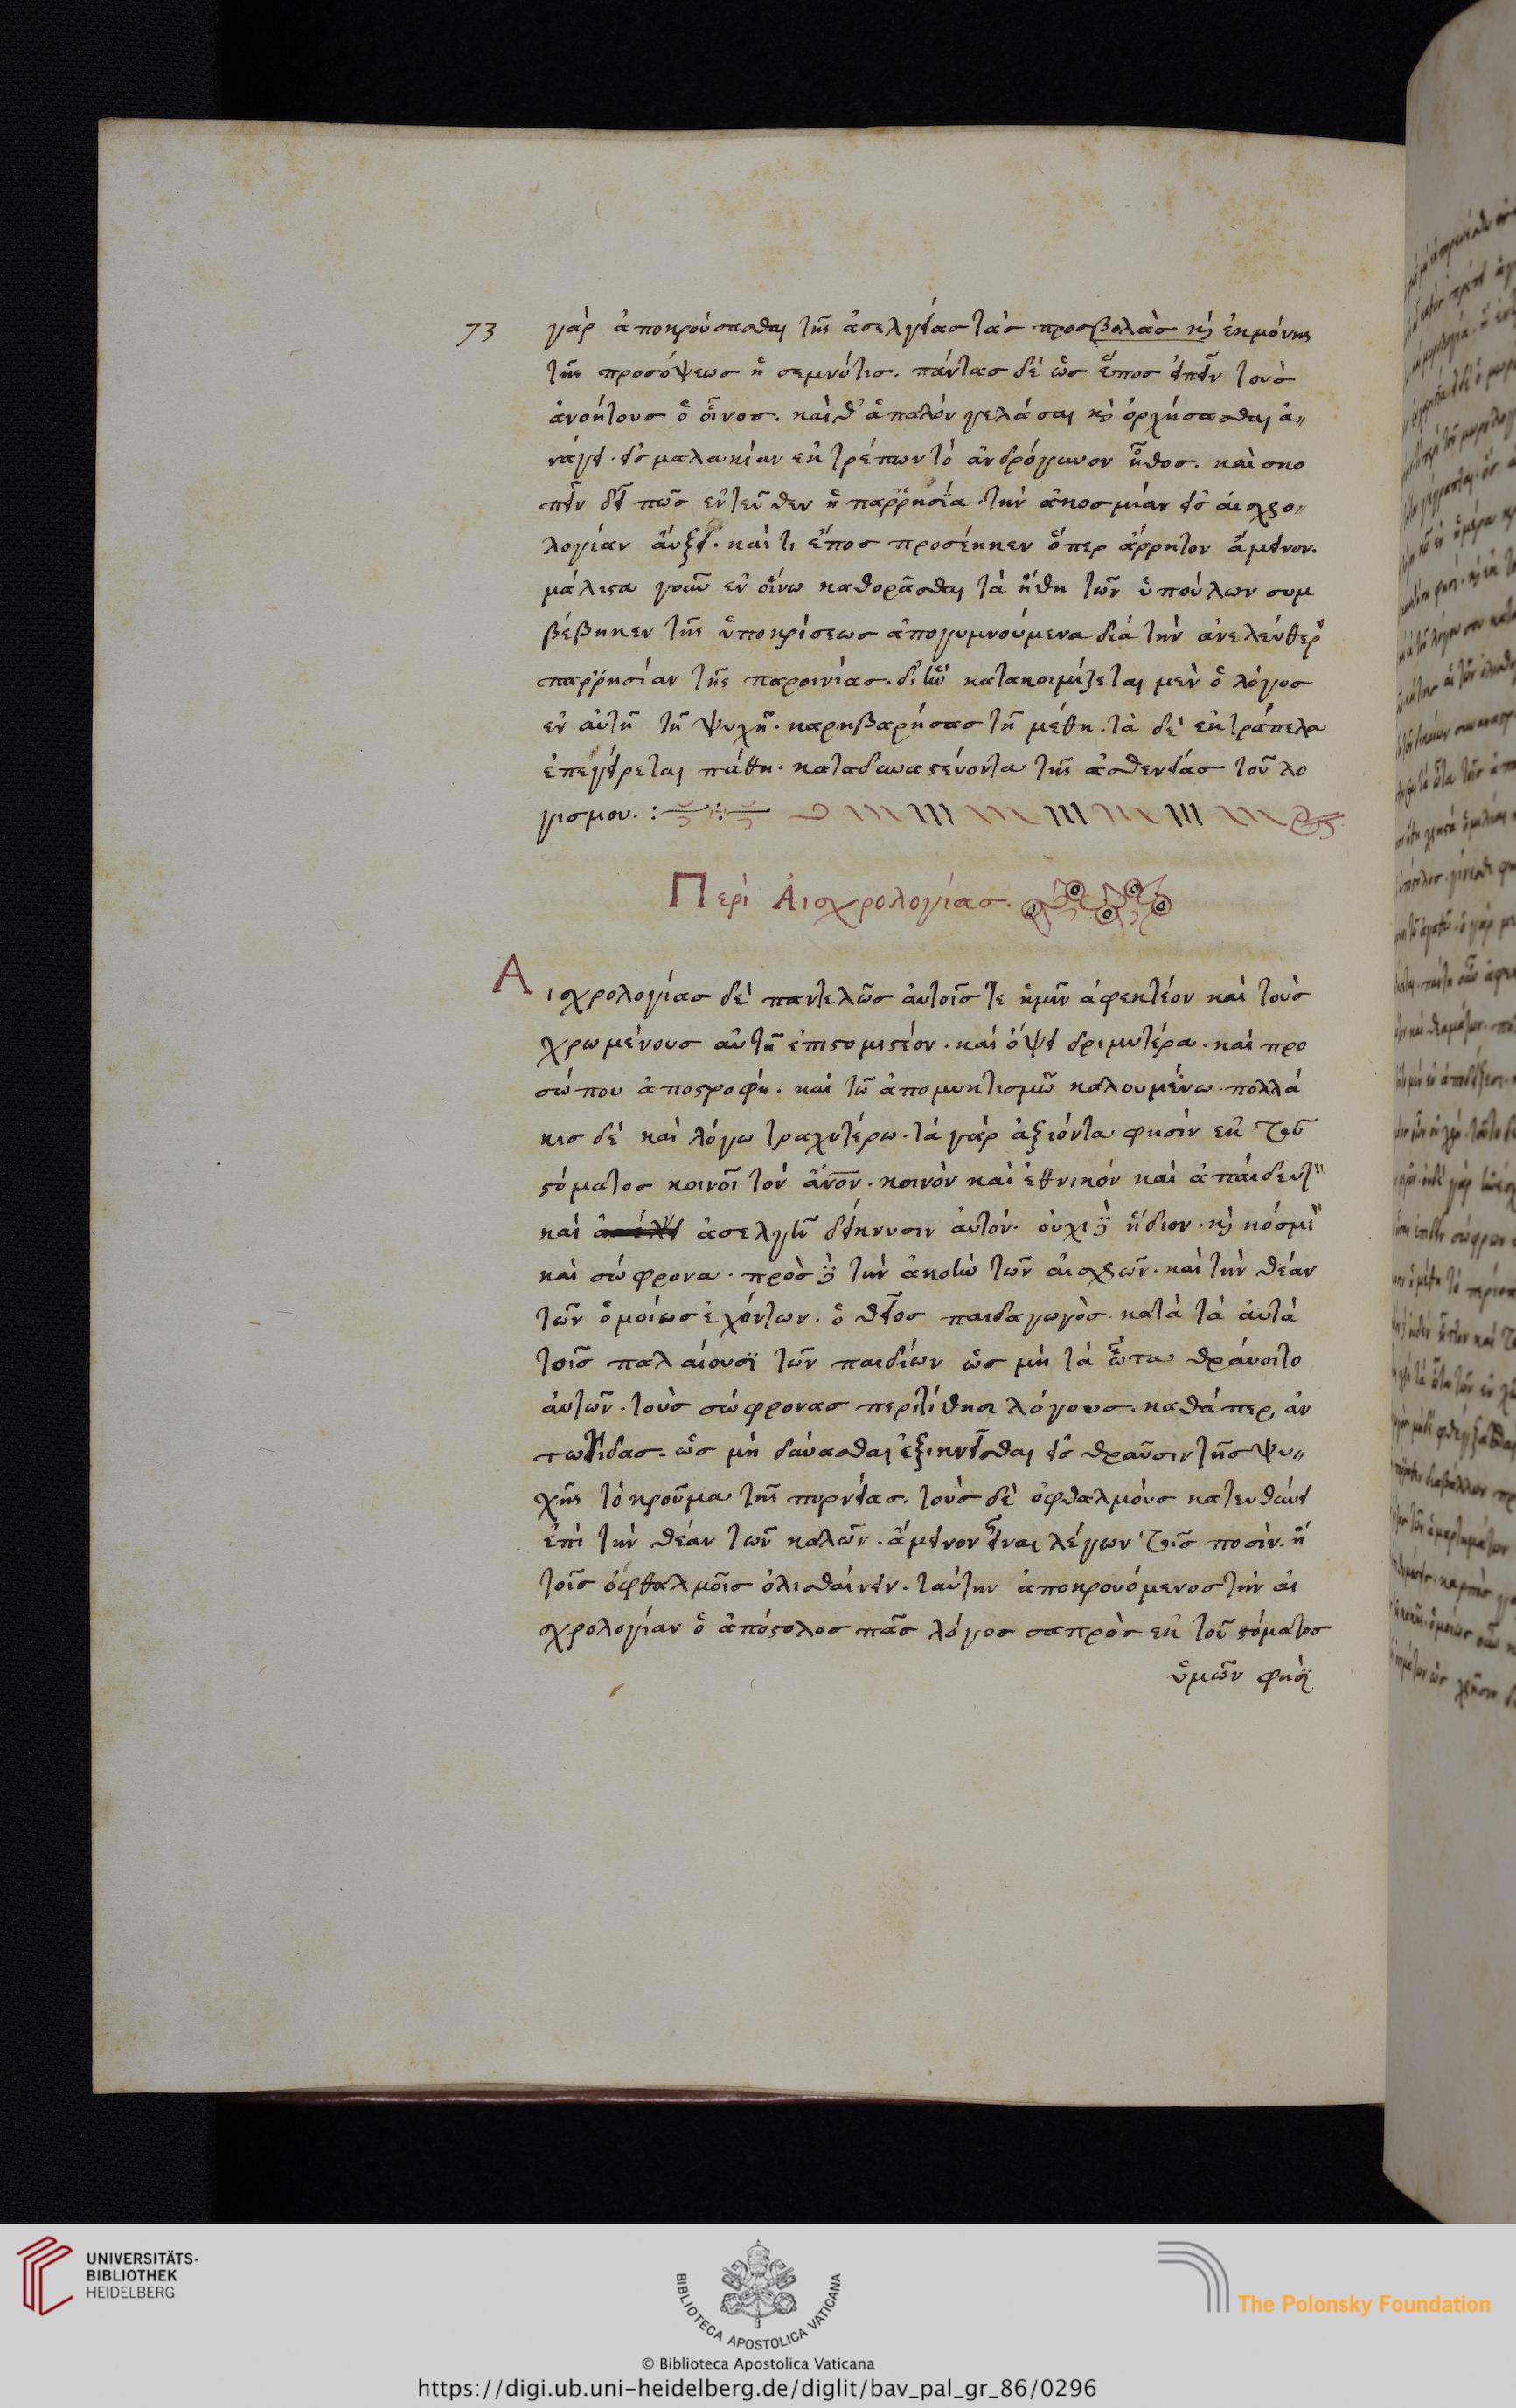 73
γὰρ ἀποκρούσασθαι τῆς ἀσελγείας τὰς προσβολὰς καὶ ἐκμόνης
τῆς προσόψεως ἡ σεμνότις. πάντας δὲ ὡς ἔπος εἰπεῖν τοὺς
ἀνοήτους ὁ οἶνος. καὶ θ' ἁπαλόν γελάσαι καὶ ὀρχήσασθαι ἀ〃
νάγει. εἰς μαλακίαν ἐκτρέπων τὸ ἀνδρόγυνον ἦθος. καὶ σκο
πεῖν δεῖ πῶς ἐντεῦθεν ἡ παρρησΐα τὴν ἀκοσμίαν εἰς αἰσχρο〃
λογίαν αὔξει. καὶ τι ἔπος προσέηκεν ὅπερ ἄρρητον ἄμεινον.
μάλιστα γοῦν ἐν οἴνω καθορᾶσθαι τὰ ἤθη τῶν ὑπούλων συμ
βέβηκεν τῆς ὑποκρίσεως ἀπογυμνούμενα διὰ τὴν ἀνελεύθερ
παρρησίαν τῆς παροινίας. δι' ἣν κατακοιμίζεται μὲν ὁ λόγος
ἐν αὐτῆ τῆ ψυχῆ. καρηβαρήσας τῆ μέθη. τὰ δὲ ἐκτράπελα
ἐπεγείρεται πάθη. καταδυναστεύοντα τῆς ἀσθενείας τοῦ λο
γισμου. :
Περὶ Αἰσχρολογίας.
Αἰσχρολογίας δὲ παντελῶς αὐτοῖς τε ἡμῖν ἀφεκτέον καὶ τοὺς
χρωμένους αὐτῆ ἐπιστομιστέον. καὶ ὄψει δριμυτέρα. καὶ προ
σώπου ἀποστροφή. καὶ τῶ ἀπομυκτισμῶ καλουμένω. πολλά
κις δὲ καὶ λόγω τραχυτέρω. τὰ γὰρ ἀξιόντα φησὶν ἐκ τοῦ
στόματος κοινοῖ τὸν ἄνον. κοινὸν καὶ ἐθνικόν καὶ ἀπαίδευτ
καὶ ἀσελγῆ δείκνυσιν αὐτόν. οὐχὶ δὲ ἥδιον. καὶ κόσμι
καὶ σώφρονα. πρὸς δὲ τὴν ἀκοὴν τῶν αἰσχρῶν. καὶ τὴν θέαν
τῶν ὁμοίως ἐχόντων. ὁ θεῖος παιδαγωγὸς. κατὰ τὰ αὐτὰ
τοῖς παλαίουσϊ τῶν παιδίων ὡς μὴ τὰ ὦτα θραύοιτο
αὐτῶν. τοὺς σώφρονας περιτίθησι λόγους. καθάπερ, ἀν
τωτίδας. ὡς μὴ δύνασθαι ἐξικνεῖσθαι εἰς θραῦσιν τῆς ψυ〃
χῆς τὸ κροῦμα τῆς πορνείας. τοὺς δὲ ὀφθαλμοὺς κατευθύνει
ἐπὶ τὴν θέαν τῶν καλῶν. ἄμεινον εἶναι λέγων τοῖς ποσίν. ἢ
τοῖς ὀφθαλμοῖς ὀλισθαίνειν. ταύτην ἀποκρουόμενος τὴν αἰ
σχρολογίαν ὁ ἀπόστολος πᾶς λόγος σαπρὸς ἐκ τοῦ στόματος
ὑμῶν φησϊ
UNIVERSITÄTS-
BIBLIOTHEK
HEIDELBERG
BIBLIOTECA APOSTOLICA VATICANA
The Polonsky Foundation
© Biblioteca Apostolica Vaticana
https://digi.ub.uni-heidelberg.de/diglit/bav_pal_gr_86/0296